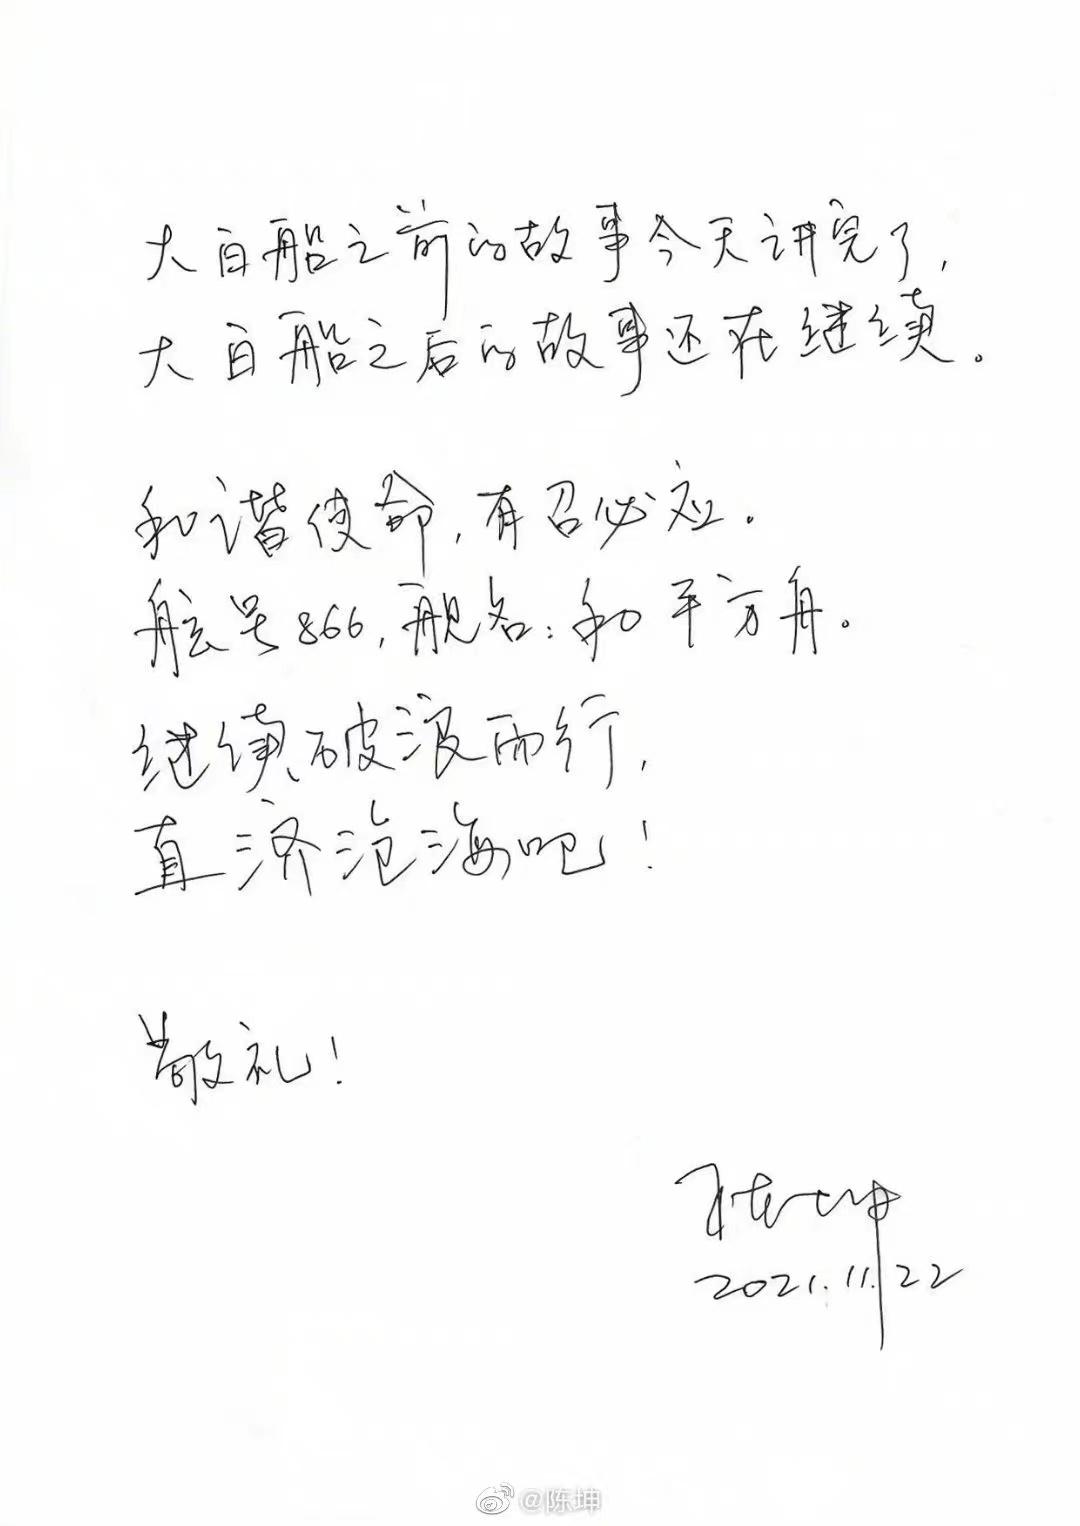 大白船之前的故事今天讲完了，
大白船之后的故事还在继续。
和谐使命，有召必应.
舷号866，舰名：和平方舟.
继续破浪而行，
直济沧海吧！
敬礼！
陈坤
2021.11.22
@陈坤